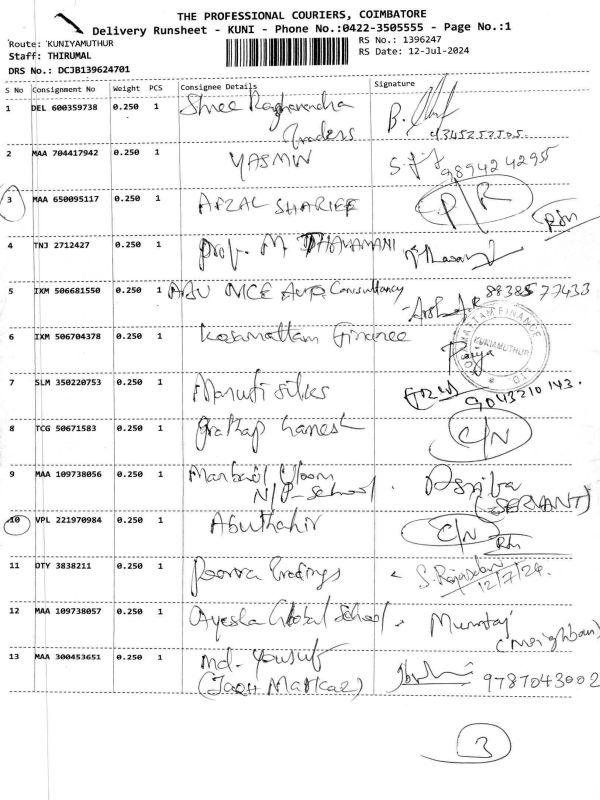 THE PROFESSIONAL COURIERS, COIMBATORE
Delivery Runsheet - KUNI - Phone No.:0422-3505555 - Page No.:1
Route: KUNIYAMUTHUR RS No.: 1396247
Staff: THIRUMAL RS Date: 12-Jul-2024
DRS No.: DCJB139624701
S No Consignment No Weight PCS Consignee Details Signature
1 DEL 600359738 0.250 1 Shree Raghavendra
Traders
2 MAA 704417942 0.250 1 YASMIN 9894242295
3 MAA 650095117 0.250 1 AFZAL SHARIEF P/R
4 TNJ 2712427 0.250 1 Prof. M DHAVAMANI
5 IXM 506681550 0.250 1 Auto Consultancy 8838577433
6 IXM 506704378 0.250 1 Kosamattam Finance
KUNIAMUTHUR
7 SLM 350220753 0.250 1 Maruti Silks
9043210143.
8 TCG 50671583 0.250 1 Prathap Ganesh C/N
9 MAA 109738056 0.250 1
N/P-School. (SERVANT)
10 VPL 221970984 0.250 1 Abuthahir C/N
11 OTY 3838211 0.250 1 Tradings
12/7/24.
12 MAA 109738057 0.250 1 Ayesha Global School. Mumtaj
(Neighbour)
13 MAA 300453651 0.250 1 Md. Yousuf
9787043002
3